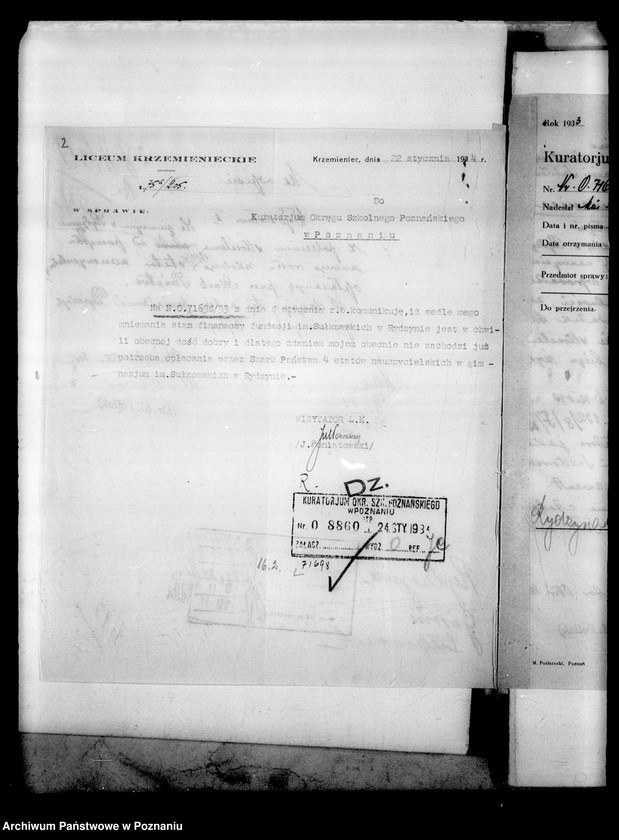 2
LICEUM KRZEMIENIECKIE
Krzemieniec, dnia 22 stycznia 1934 r.
W SPRAWIE:
Do
Kuratorjum Okręgu Szkolnego Poznańskiego
w Poznaniu
Na N.O.71698/33 z dnia 8 stycznia r.b. komunikuję, iż wedle mego
mniemania stan finansowy fundacji im. Sułkowskich w Rydzynie jest w chwi-
li obecnej dość dobry i dlatego zdaniem mojem obecnie nie zachodzi już
potrzeba opłacania przez Skarb Państwa 4 etatów nauczycielskich w gim -
nazjum im. Sułkowskich w Rydzynie.-
WIZYTATOR L.K.
/J.Poniatowski/
R.
DZ.
KURATORJUM OKR. SZK. POZNAŃSKIEGO
W POZNANIU
Nr. 0 8860 WPŁ. 24. STY 1934
ZAŁĄCZ. WYDZ. O REF.
16.2. 71698
Rok 1933
Kuratorju
Nr.
Nadesłał
Data i nr. pisma
Data otrzymania
Przedmiot sprawy:
Do pojrzenia.
Rydzyna
M. Putiatycki, Poznań
Archiwum Państwowe w Poznaniu